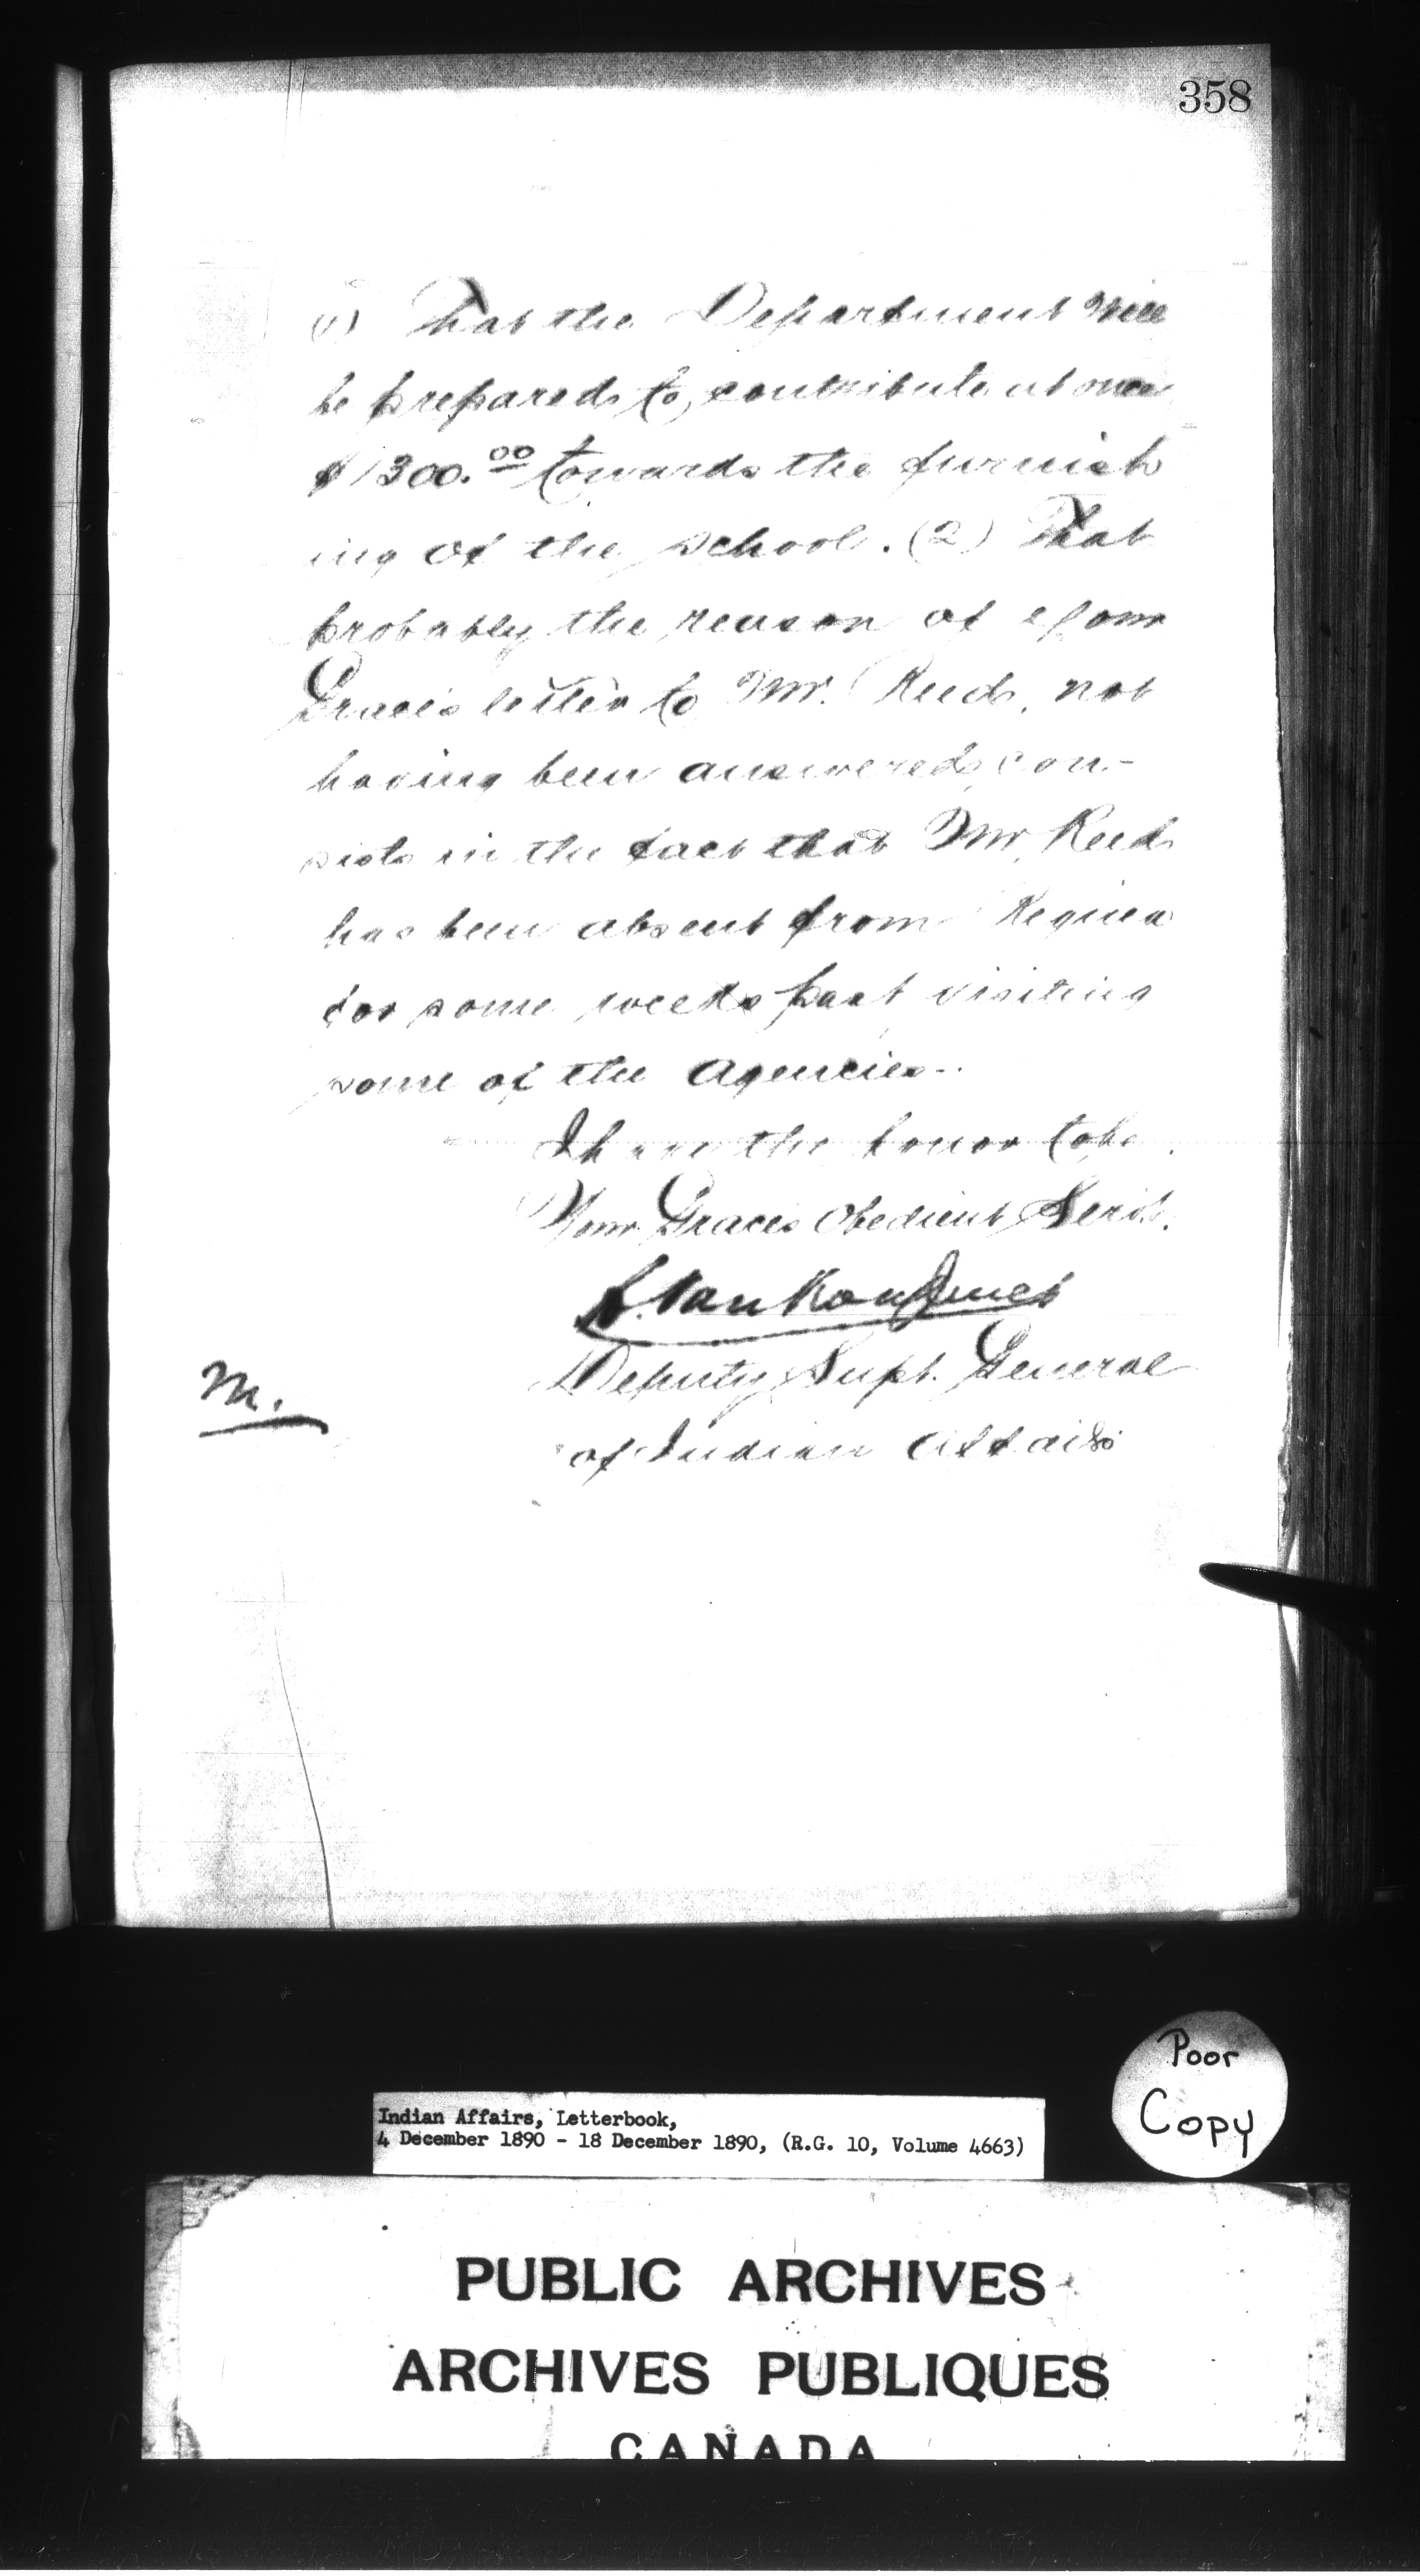 358
(1) That the Department will
be prepared to contribute at once
$1300.00 towards the furnish
ing of the school. (2) That
probably the reason of your
Grace's letter to Mr. Reed, not
having been answered, con-
sists in the fact that Mr. Reed
has been absent from Regina
for some weeks past visiting
some of the Agencies.
I have the honor to be
Your Grace's Obedient Servt.
L. VanKoughnet
Deputy Supt. General
of Indian Affairs
M.
Poor
Copy
Indian Affairs, Letterbook,
4 December 1890 - 18 December 1890, (R.G. 10, Volume 4663)
PUBLIC ARCHIVES
ARCHIVES PUBLIQUES
CANADA